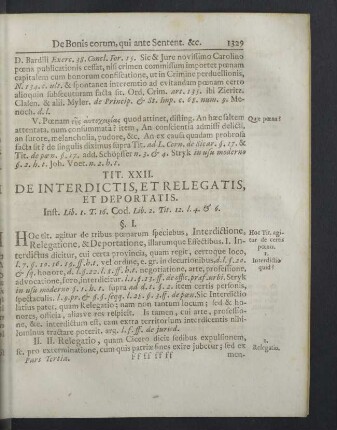 De Bonis eorum, qui ante Sentent. &c. 1329
D. Bardili Exerc. 38. Concl. For. 15. Sic & Jure novissimo Carolino
pœna publicationis cessat, nisi crimen commissum importet pœnam
capitalem cum bonorum confiscatione, ut in Crimine perduellionis,
& spontanea interemtio ad evitandam pœnam certo
alioquin subsecuturam facta sit. Ord. Crim. art. 135. ibi Zieritz.
Clasen. & alii. Myler. de Princip. & St. Imp. c. 63. num. 9. Me-
noch. d. l.
V. Pœnam τῆς αὐτοχειρίας quod attinet, disting. An hæc saltem
attentata, num consummata? item, An conscientia admissi delicti,
an furore, melancholia, pudore, &c. An ex causa quadam probrosa
facta sit? de singulis diximus supra Tit. ad L. Corn. de Sicar. §. 17. &
Tit. de pœn. §. 17. add. Schöpffer n. 3. & 4. Stryk in usu moderno
§. 2. h. t. Joh. Voet. n. 2. h. t.
Quæ pœna?
TIT. XXII.
DE INTERDICTIS, ET RELEGATIS,
ET DEPORTATIS.
Inst. Lib. 1. T. 16. Cod. Lib. 2. Tit. 12. l. 4. & 6.
§. I.
HOc tit. agitur de tribus pœnarum speciebus, Interdictione,
Relegatione, & Deportatione, illarumque Effectibus. I. In-
terdictus dicitur, cui certa provincia, quam regit, certoque loco,
& sq. honore, negotiatione, arte, professione,
advocatione, foro, interdicitur.
in usu moderno §. 1. h. t. supra
spectaculis.
pœna est, Relegatio; nam non tantum locum; sed & ho-
nores, officia, aliave res respicit. Is tamen, cui ars, professio-
ne, &c. interdictum est, eam extra territorium interdicentis nihi-
lominus tractare poterit. arg. l. ff. de jurisd.
Hoc Tit. agi-
tur de certis
pœnis.
1.
Interdictio
quid?
II. II. Relegatio, quam Cicero dicit sedibus expulsionem,
se. pro exterminatione, cum quis patriæ fines exire jubetur; sed ex
2.
Relegatio.
Pars Tertia. ff ff ff ff men-